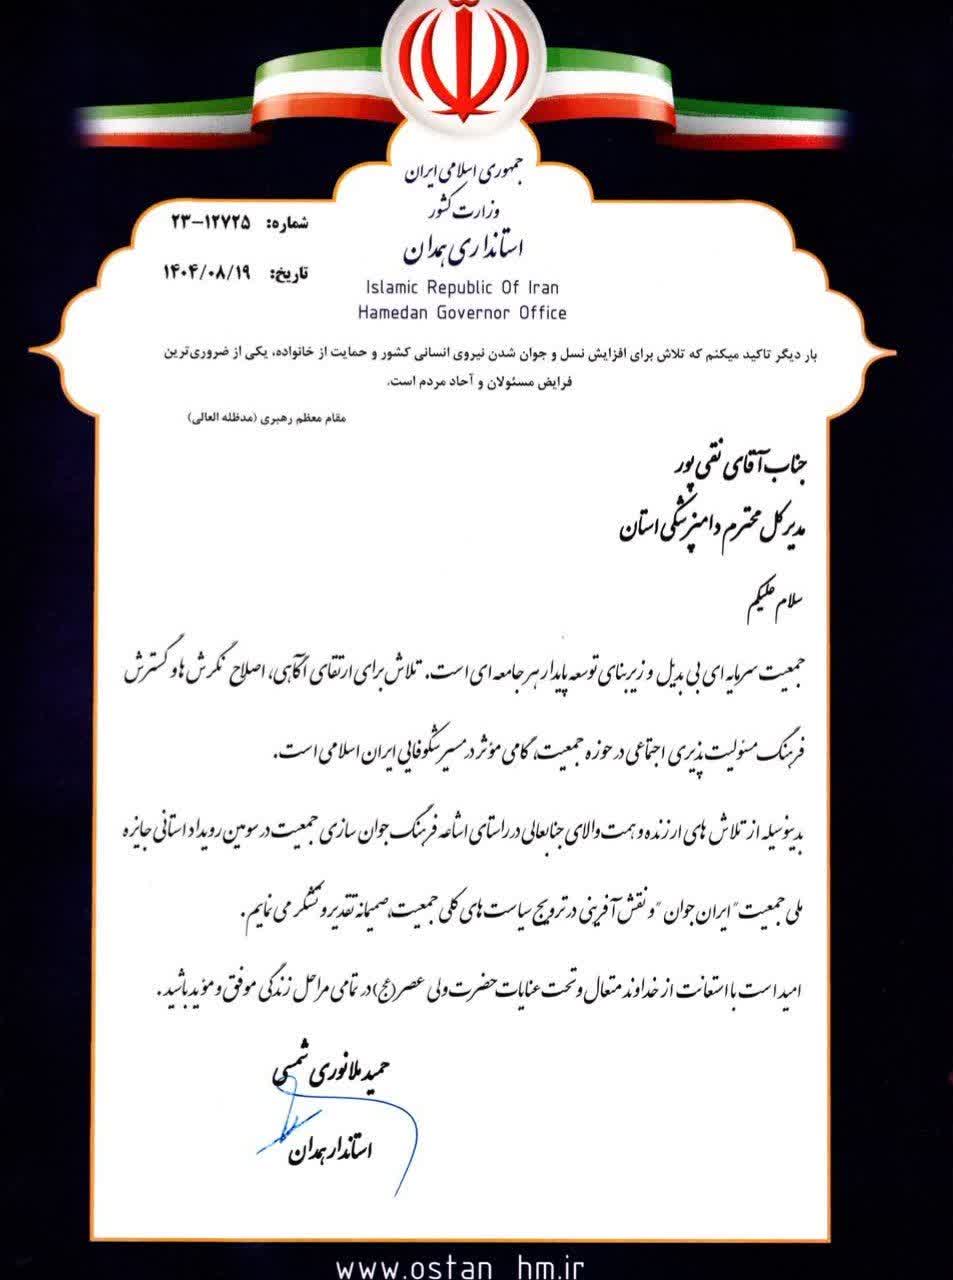 جمهوری اسلامی ایران
وزارت کشور
استانداری همدان
Islamic Republic Of Iran
Hamedan Governor Office
شماره: ۱۲۷۲۵–۲۳
تاریخ: ۱۴۰۴/۰۸/۱۹
بار دیگر تاکید میکنم که تلاش برای افزایش نسل و جوان شدن نیروی انسانی کشور و حمایت از خانواده، یکی از ضروری‌ترین
فرایض مسئولان و آحاد مردم است.
مقام معظم رهبری (مدظله العالی)
جناب آقای نقی پور
مدیرکل محترم دامپزشکی استان
سلام علیکم
جمعیت سرمایه ای بی بدیل و زیربنای توسعه پایدار هر جامعه ای است. تلاش برای ارتقای آگاهی، اصلاح نگرش ها و گسترش
فرهنگ مسئولیت پذیری اجتماعی در حوزه جمعیت، گامی مؤثر در مسیر شکوفایی ایران اسلامی است.
بدینوسیله از تلاش های ارزنده و همت والای جنابعالی در راستای اشاعه فرهنگ جوان سازی جمعیت در سومین رویداد استانی جایزه
ملی جمعیت "ایران جوان" و نقش آفرینی در ترویج سیاست های کلی جمعیت، صمیمانه تقدیر و تشکر می نمایم.
امید است با استعانت از خداوند متعال و تحت عنایات حضرت ولی عصر(عج) در تمامی مراحل زندگی موفق و مؤید باشید.
حمید ملانوری شمسی
استاندار همدان
www.ostan_hm.ir